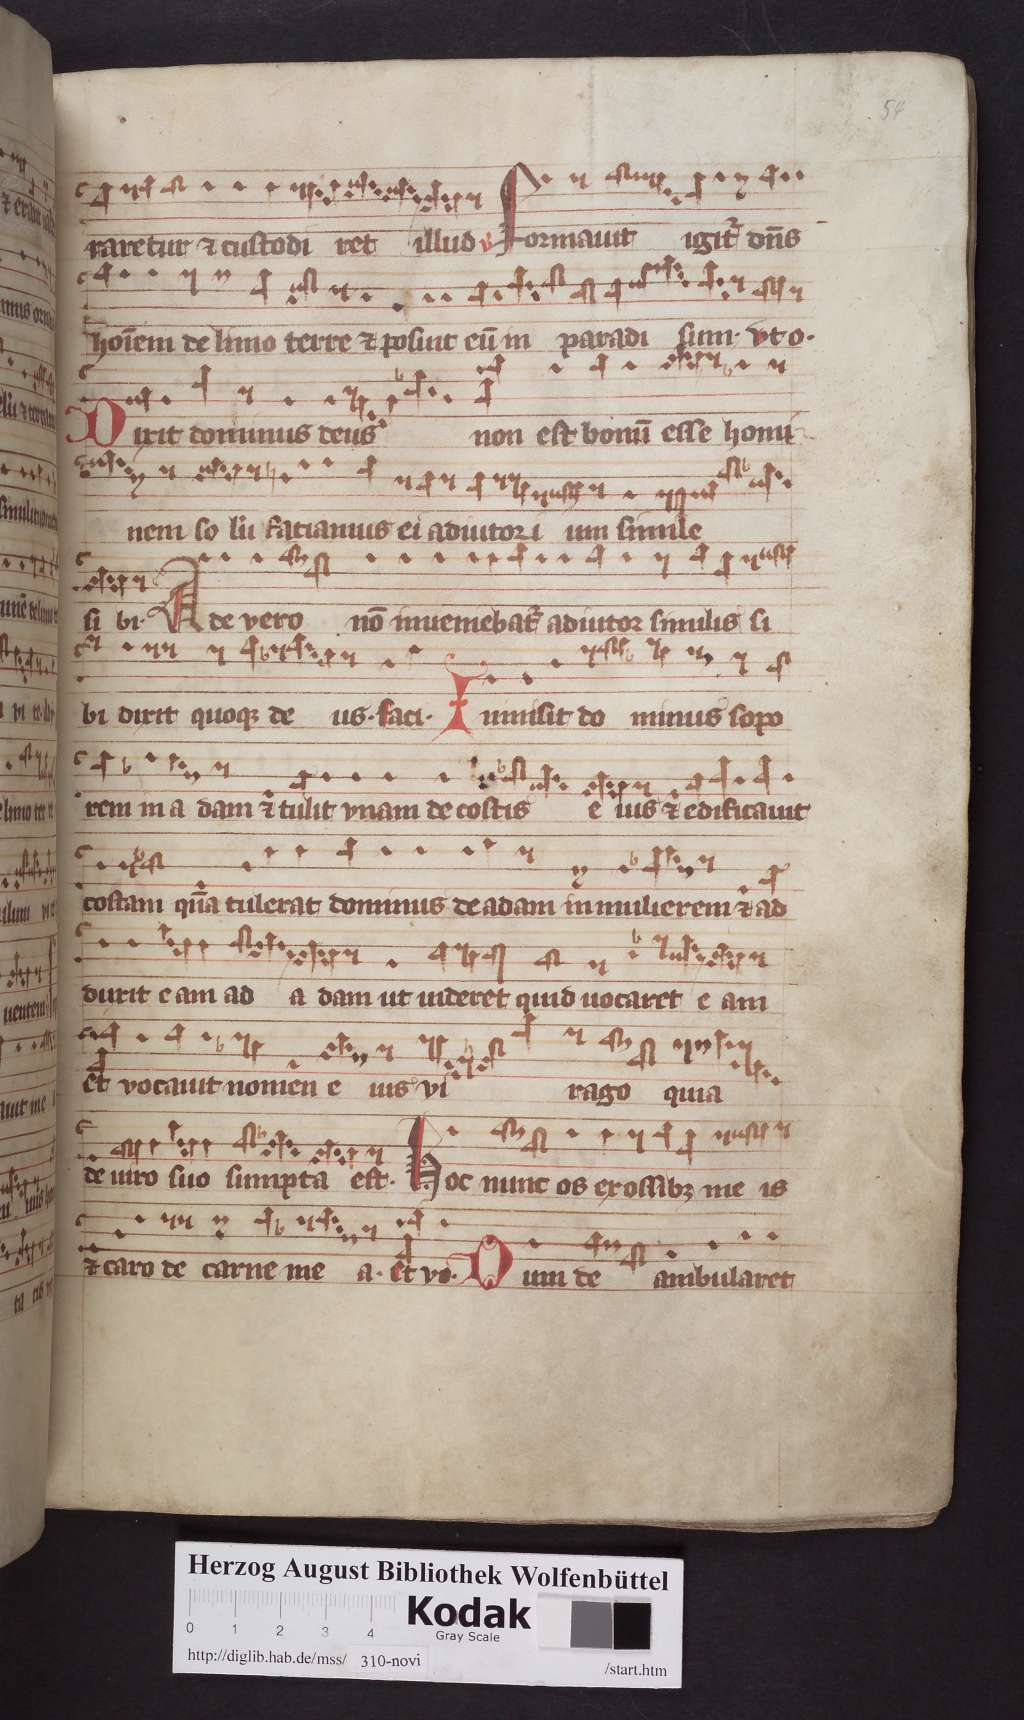 54
raretur ⁊ custodi ret illud v Formauit igit᷑ dn̄s
hoīem de limo terre ⁊ posuit eū in paradi sum· vt o·
Dixit dominus deus non est bonū esse homi
nem so lū faciamus ei adiutori um simile
si bi· Ade vero nō inueniebat᷑ adiutor similis si
bi dixit quoqꝫ de us· faci· Immisit do minus sopo
rem in a dam ⁊ tulit vnam de costis e ius ⁊ edificauit
costam quā tulerat dominus de adam in mulierem ⁊ ad
duxit e am ad a dam ut uideret quid uocaret e am
et vocauit nomen e ius vi rago quia
de uiro suo sumpta est· Hoc nunc os ex ossibꝫ me is
⁊ caro de carne me a· et vo· Dum de ambularet
Herzog August Bibliothek Wolfenbüttel
Kodak
Gray Scale
0 1 2 3 4
http://diglib.hab.de/mss/ 310-novi /start.htm